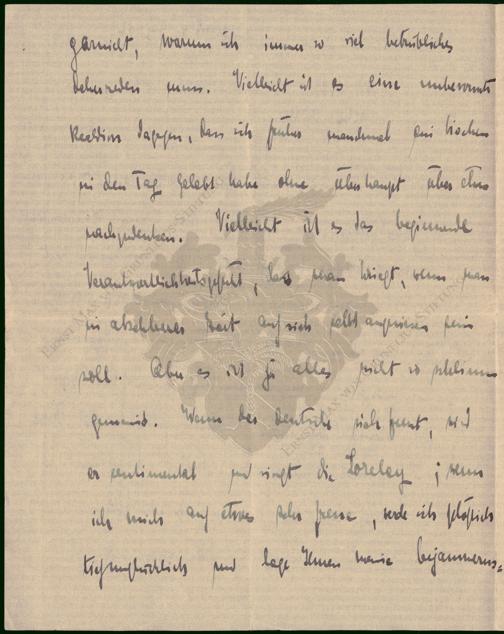 garnicht, warum ich immer so viel betrübliches
daherreden muss. Vielleicht ist es eine unbewusste
Reaktion dagegen, dass ich früher manchmal ein bischen
in den Tag gelebt habe ohne überhaupt über etwas
nachzudenken. Vielleicht ist es das beginnende
Verantwortlichkeitsgefühl, das man kriegt, wenn man
in absehbarer Zeit auf sich selbst angewiesen sein
soll. Aber es ist ja alles nicht so schlimm
gemeint. Wenn der Deutsche sich freut, wird
er sentimental und singt die Loreley; wenn
ich mich auf etwas sehr freue, werde ich plötzlich
tiefunglücklich und sage Ihnen meine bejammerns=